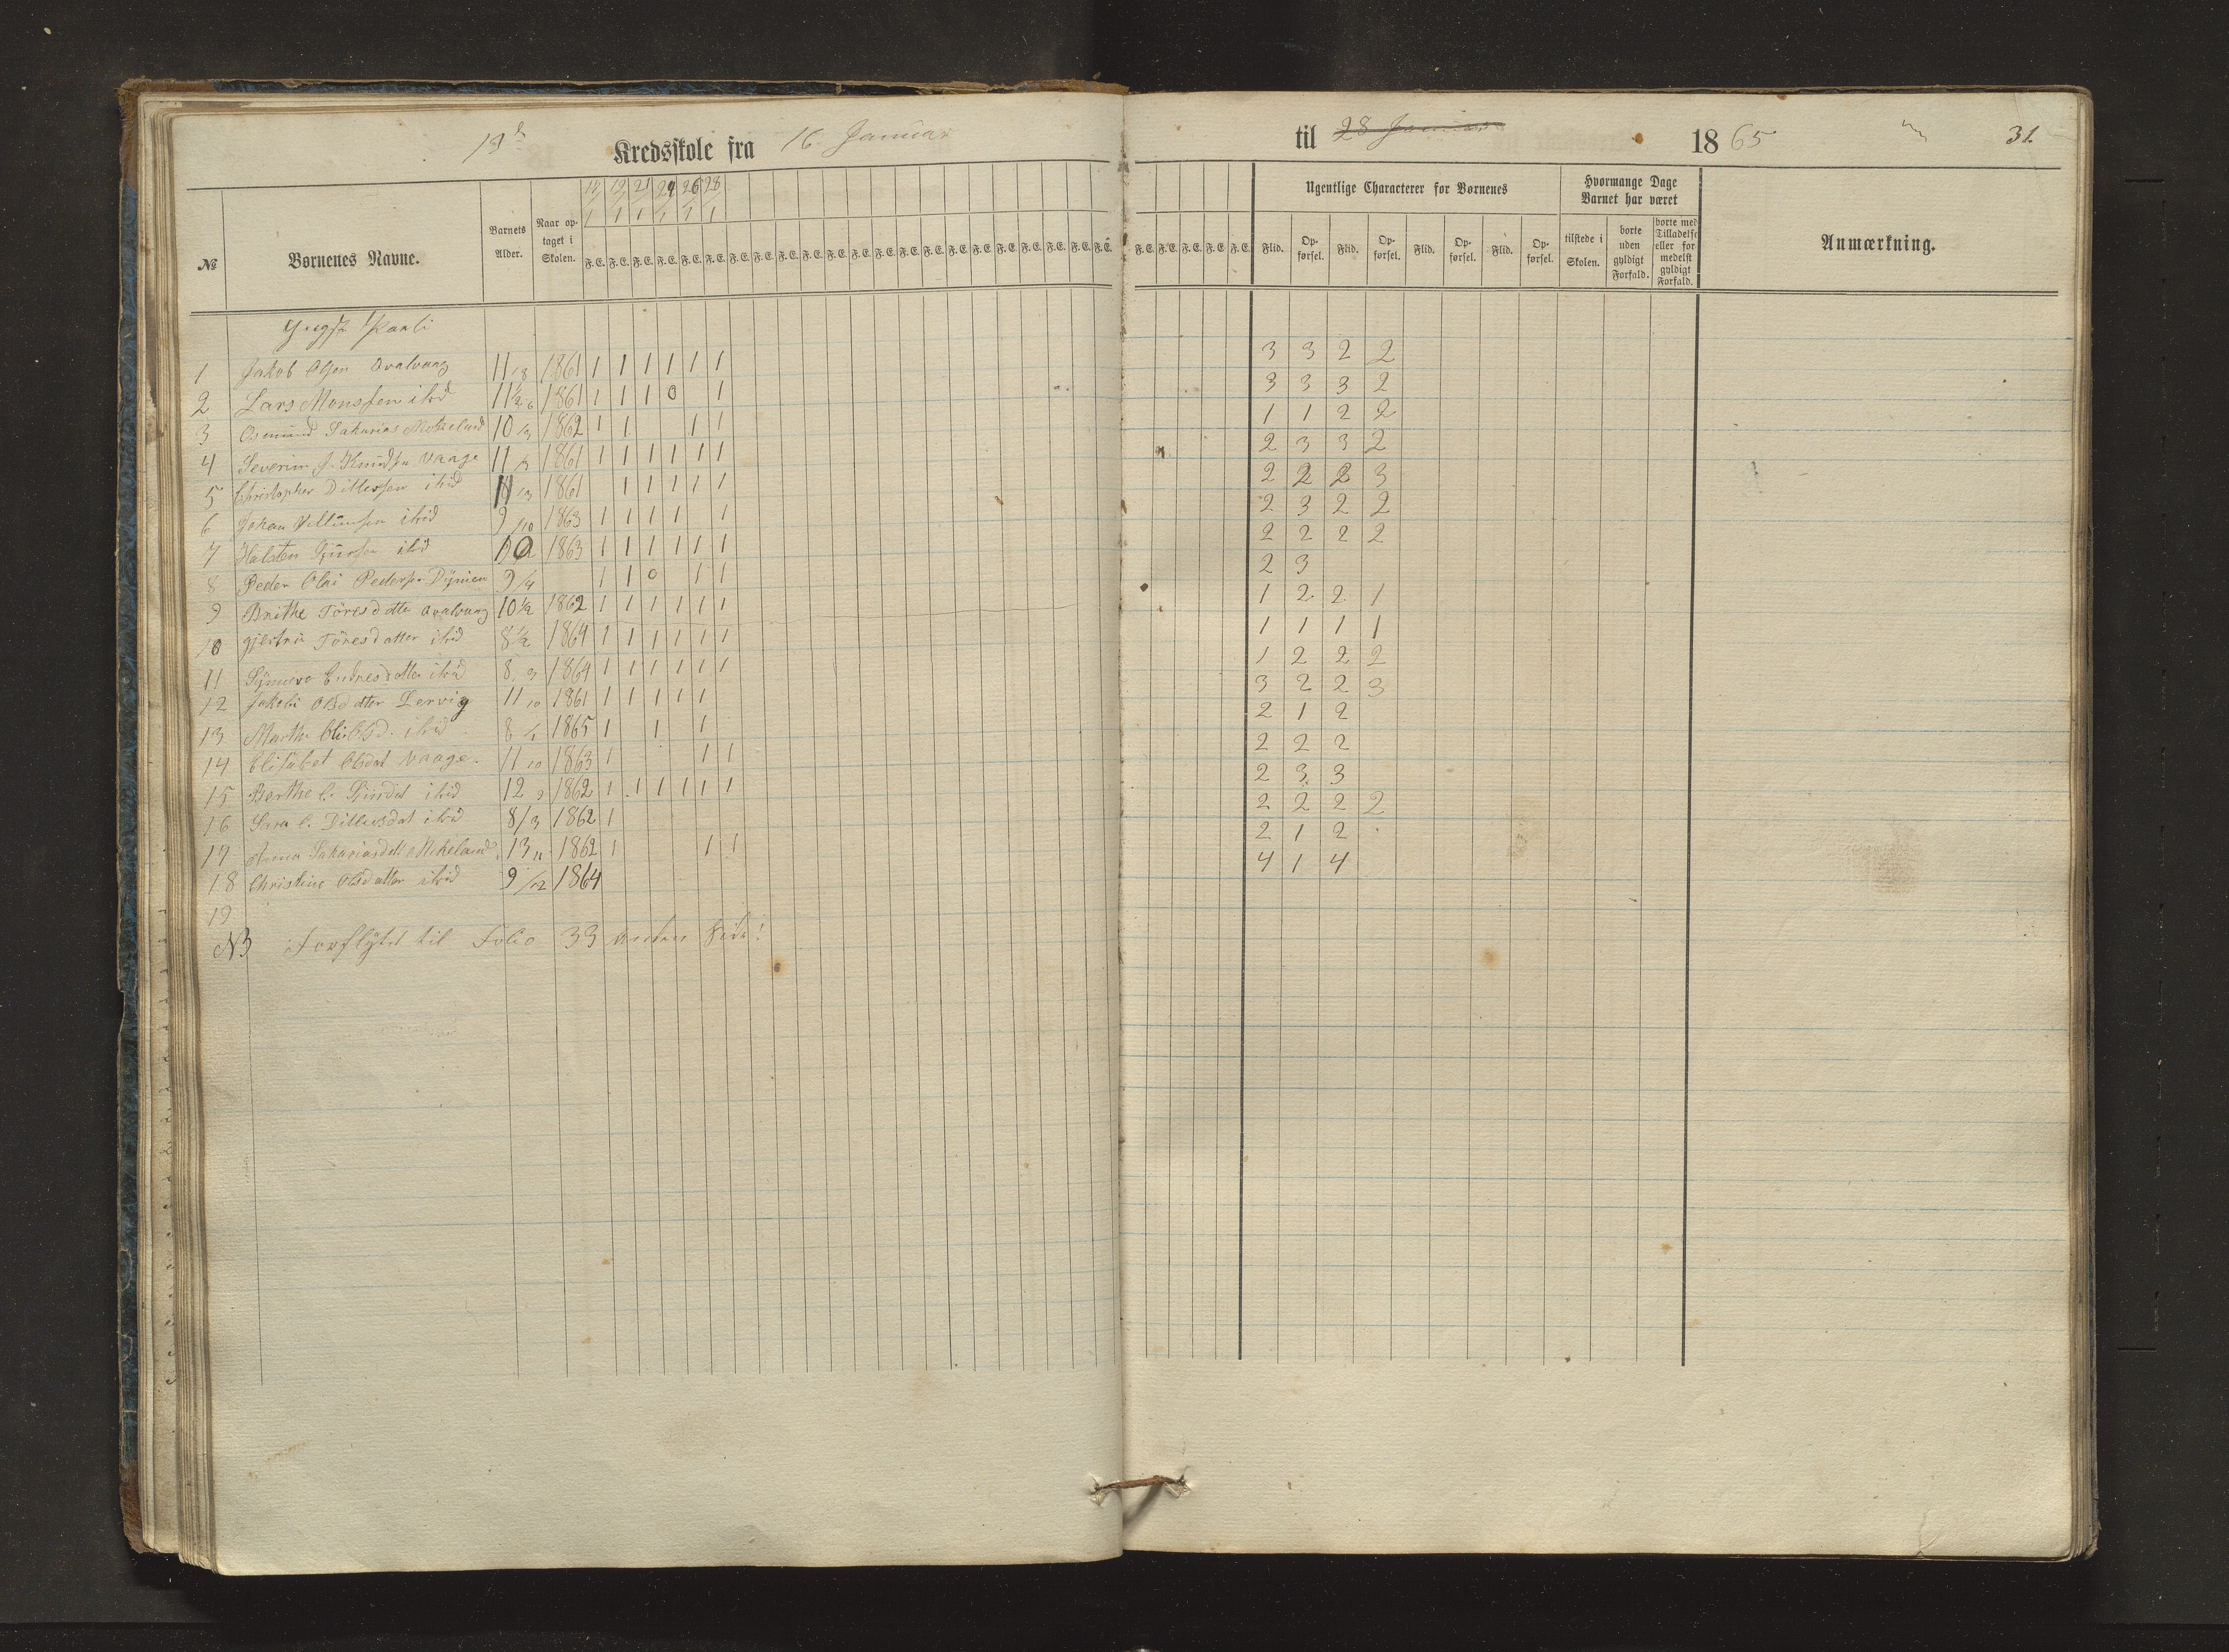 13de Kredsskole fra 16 Januar til 28 Januar 1865 31.
17 19 21 24 26 28
1 1 1 1 1 1
Ugentlige Characterer for Børnenes
Hvormange Dage Barnet har været
№ Børnenes Navne. Barnets Alder. Naar optaget i Skolen. F.E. F.E. F.E. F.E. F.E. F.E. F.E. F.E. F.E. F.E. F.E. F.E. F.E. F.E. F.E. F.E. F.E. F.E. F.E. F.E. F.E. F.E. F.E. F.E. F.E. F.E. F.E. Flid. Opførsel. Flid. Opførsel. Flid. Opførsel. Flid. Opførsel. tilstede i Skolen. borte uden gyldigt Forfald. borte med Tilladelse eller formedelst gyldigt Forfald. Anmærkning.
1 Jakob Olsen Ovalvaag 11/8 1861 1 1 1 1 1 1 3 3 2 2
2 Lars Monssen ibid 11½ 6 1861 1 1 1 0 1 3 3 3 2
3 Osmund Sakarias Mekeland 10/3 1862 1 1 1 1 1 1 2 2
4 Severin J. Knudsen Vaage 11 1861 1 1 1 1 1 1 2 3 3 2
5 Christopher Ditlefsen ibid 11/3 1861 1 1 1 1 1 2 2 2 3
6 Johan Villumsen ibid 9/10 1863 1 1 1 1 1 2 3 2 2
7 Halsten ibid 10 1863 1 1 1 1 1 1 2 2 2 2
8 Peder Olai Peders. 9/4 1 1 0 1 1 2 3
9 Brithe Tøresdatter Ovalvaag 10½ 1862 1 1 1 1 1 1 1 2 2 1
10 Gjertru Tøresdatter ibid 8½ 1864 1 1 1 1 1 1 1 1 1 1
11 Synneve ibid 8 3 1864 1 1 1 1 1 1 1 2 2 2
12 Jakobi Olsdatter Lervig 11 10 1861 1 1 1 1 1 3 2 2 3
13 Marthe Olsd. ibid 8 1865 1 1 1 2 1 2
14 Elisabet Olsdat Vaage. 11 10 1863 1 1 1 2 2 2
15 Berthe ibid 12 9 1862 1 1 1 1 1 1 2 3 3
16 Sara Ditlevsdat ibid 8/3 1862 1 2 2 2 2
17 Anna Sakariasdatt Mekeland 13 11 1862 1 1 1 2 1 2
18 Christine Olsdatter ibid 9/12 1864 4 1 4
19
NB Forflyttet til Folio 33 anden Side!